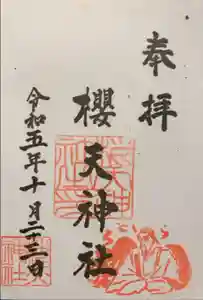 奉拝
櫻天神社
令和五年十月二十三日